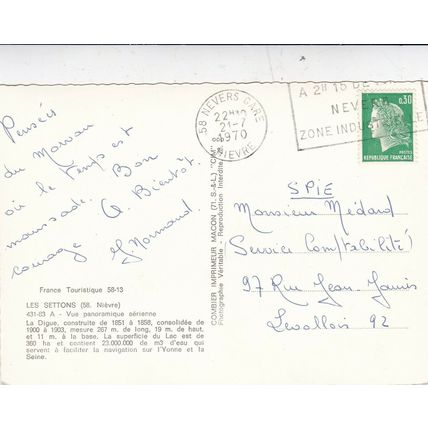 Pensées
du Morvan
où le temps est
maussade. Bon
courage. A Bientôt.
J Normand
France Touristique 58-13
LES SETTONS (58. Nièvre)
431-83 A - Vue panoramique aérienne
La Digue, construite de 1851 à 1858, consolidée de
1900 à 1903, mesure 267 m. de long, 19 m. de haut.
et 11 m. à la base. La superficie du Lac est de
360 ha et contient 23.000.000 de m3 d'eau qui
servent à faciliter la navigation sur l'Yonne et la
Seine.
COMBIER IMPRIMEUR MACON (71. S.-&-L.) "CIM"
Photographie Véritable - Reproduction Interdite
58 NEVERS GARE
21-7
1970
NIEVRE
A 2H 15 DE
NEVE
ZONE INDU
0,30
POSTES
REPUBLIQUE FRANÇAISE
SPIE
Monsieur Médard
Service Comptabilité
97 Rue Jean-Jaurès
Levallois 92